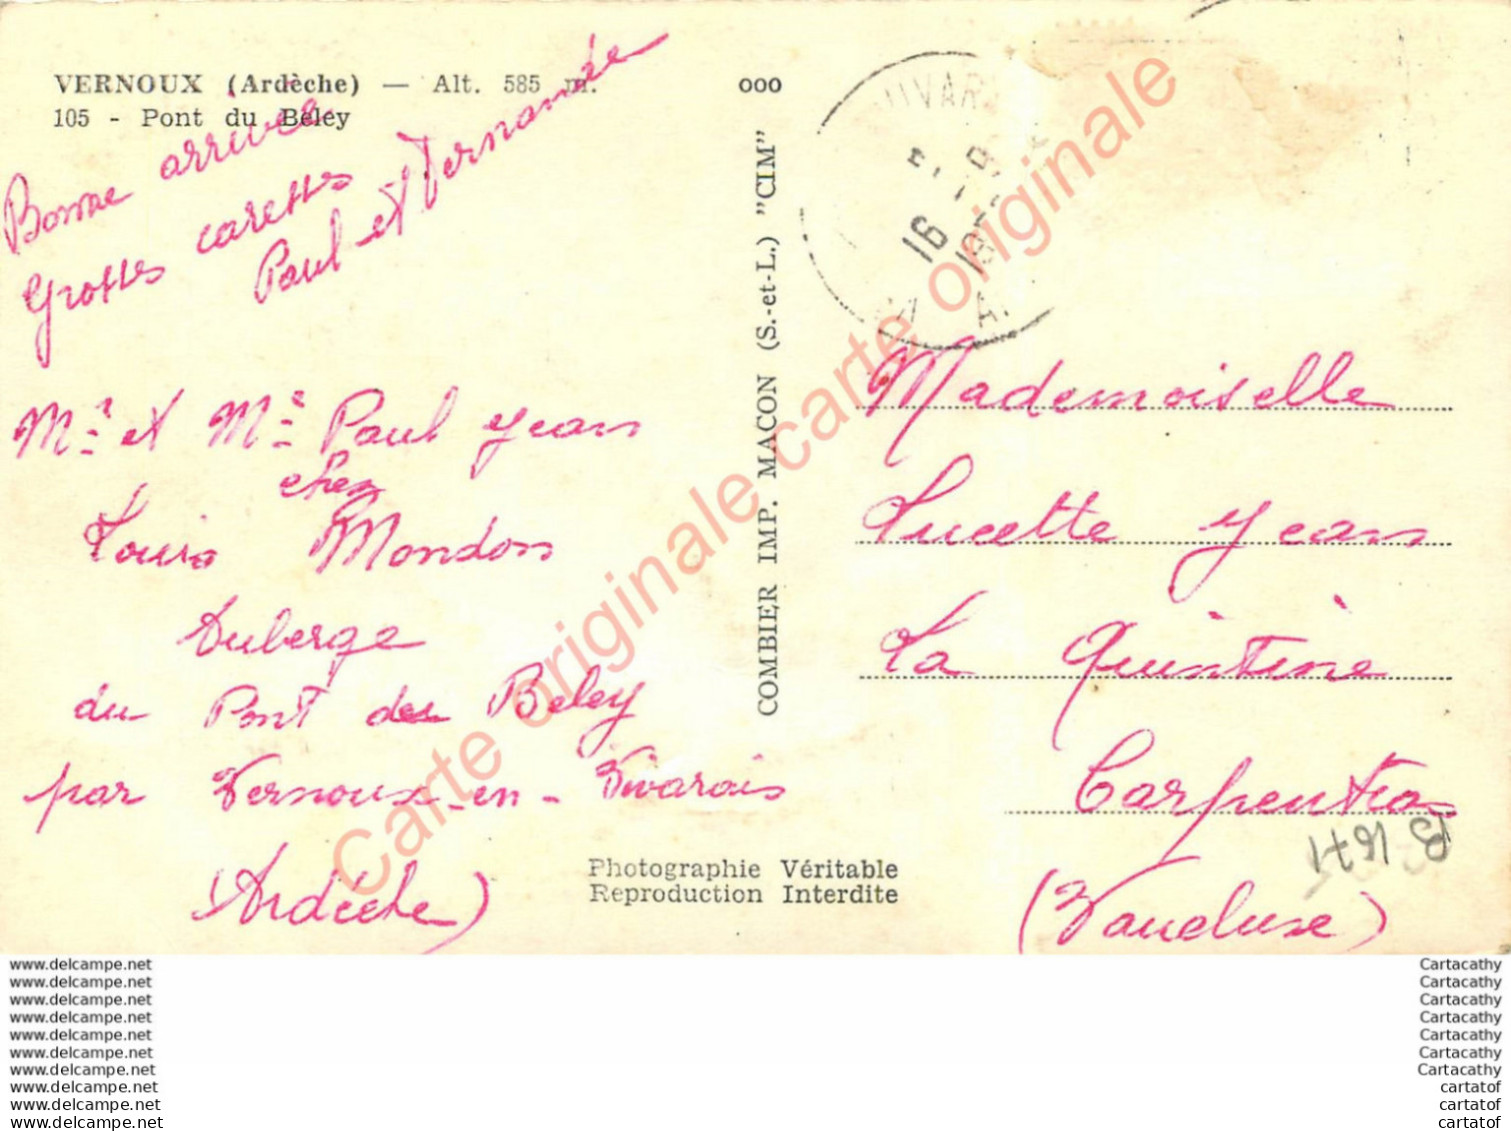 VERNOUX (Ardèche) — Alt. 585 m.
105 - Pont du Béley
ooo
Bonne arrivée
Grosses caresses
Paul et Fernande
Mr. et Me. Paul Jean
chez
Louis Mondon
Auberge
du Pont du Beley
par Vernoux-en-Vivarais
(Ardèche)
COMBIER IMP. MACON (S.-et-L.) "CIM"
Photographie Véritable
Reproduction Interdite
16
Mademoiselle
Lucette Jean
La Quintine
Carpentras
(Vaucluse)
B 1671
Carte originale carte originale
www.delcampe.net
www.delcampe.net
www.delcampe.net
www.delcampe.net
www.delcampe.net
www.delcampe.net
www.delcampe.net
www.delcampe.net
www.delcampe.net
www.delcampe.net
Cartacathy
Cartacathy
Cartacathy
Cartacathy
Cartacathy
Cartacathy
Cartacathy
cartatof
cartatof
cartatof